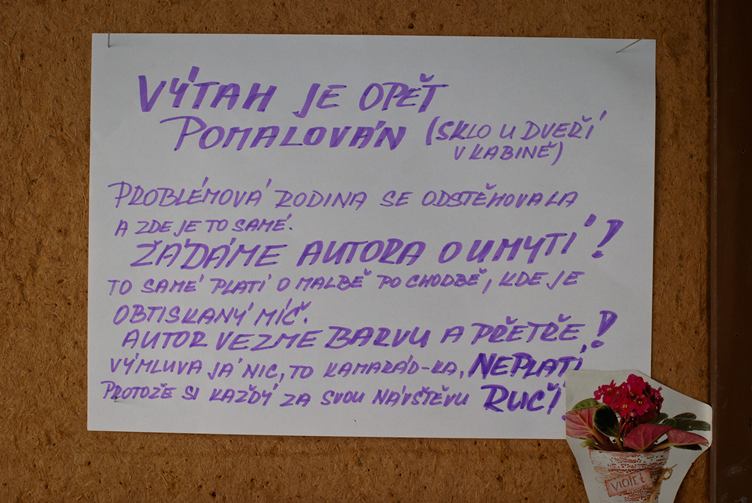 VÝTAH JE OPĚT
POMALOVÁN (SKLO U DVEŘÍ
V KABINĚ)
PROBLÉMOVÁ RODINA SE ODSTĚHOVALA
A ZDE JE TO SAMÉ.
ŽÁDÁME AUTORA O UMYTÍ!
TO SAMÉ PLATÍ O MALBĚ PO CHODBĚ, KDE JE
OBTISKANÝ MÍČ.
AUTOR VEZME BARVU A PŘETŘE!
VÝMLUVA JÁ NIC, TO KAMARÁD-KA, NEPLATÍ
PROTOŽE SI KAŽDÝ ZA SVOU NÁVŠTĚVU RUČÍ
violet